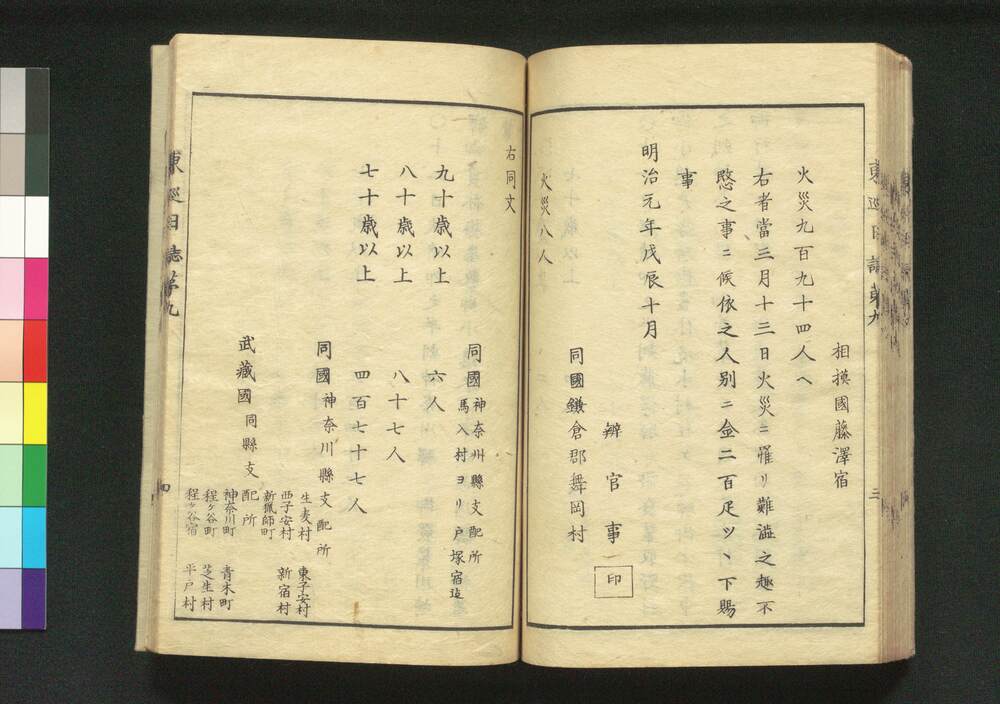 相摸國藤澤宿
火災九百九十四人ヘ
右者當三月十三日火災ニ罹リ難澁之趣不
愍之事ニ候依之人别ニ金二百疋ツヽ下賜
事
明治元年戊辰十月
辨官事 印
同國鎌倉郡舞岡村
火災八人
右同文
同國神奈州縣支配所
馬入村ヨリ戸塚宿迠
九十歳以上 六人
八十歳以上 八十七人
七十歳以上 四百七十七人
同國神奈川縣支配所
武藏國同縣支配所
生麦村 東子安村
西子安村 新宿村
新獵師町
神奈川町 青木町
程ヶ谷町 芝生村
程ヶ谷宿 平戸村
東巡日誌第九
四
東巡日誌第九
三